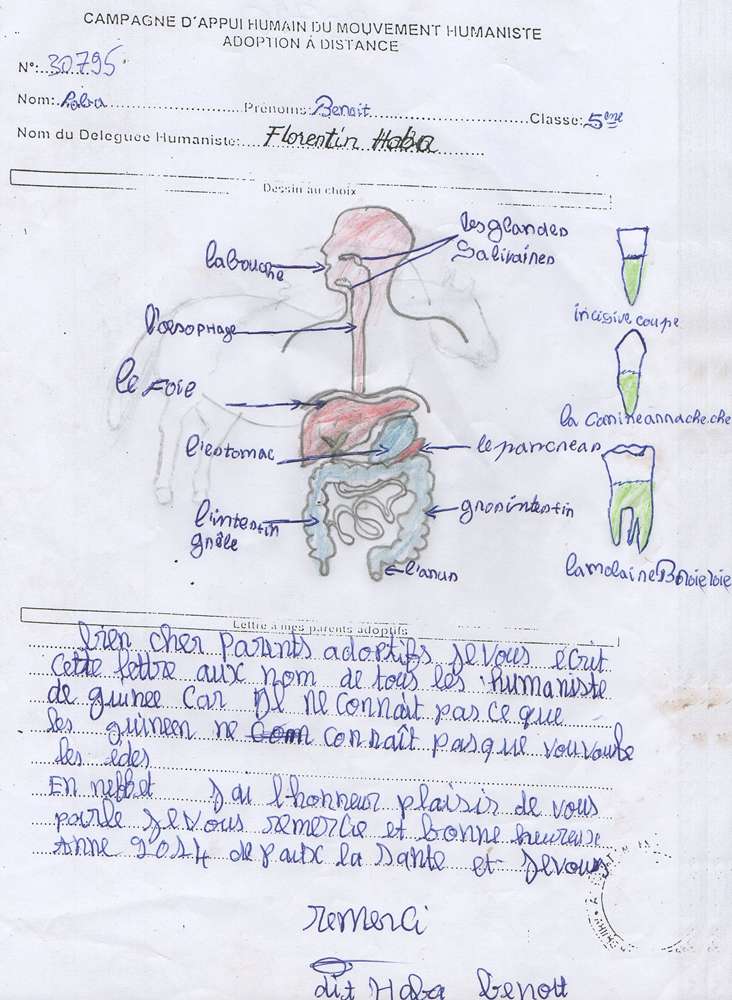 CAMPAGNE D'APPUI HUMAIN DU MOUVEMENT HUMANISTE
ADOPTION À DISTANCE
N°: 30795
Nom: Haba Prénoms: Benoit Classe: 5eme
Nom du Deleguee Humaniste: Florentin Haba
Dessin au choix
les glandes
Salivaires
la bouche
l'oesophage
incisive coupe
le Foie
la canine annache che
l'estomac
le pancreas
l'intestin
grêle
gros intestin
l'anus
la molaire Broie
Lettre à mes parents adoptifs
bien cher parents adoptifs Je vous ecrit
Cette lettre aux nom de tous les humaniste
de guinee Car Il ne connait pas ce que
les guineen ne connaît pas que vou voule
les edes
En neffet J ai l honneur plaisir de vous
parle Je vous remercie et bonne heureuse
Anne 2014 de paix la sante et Je vous
remerci
dit Haba benoit